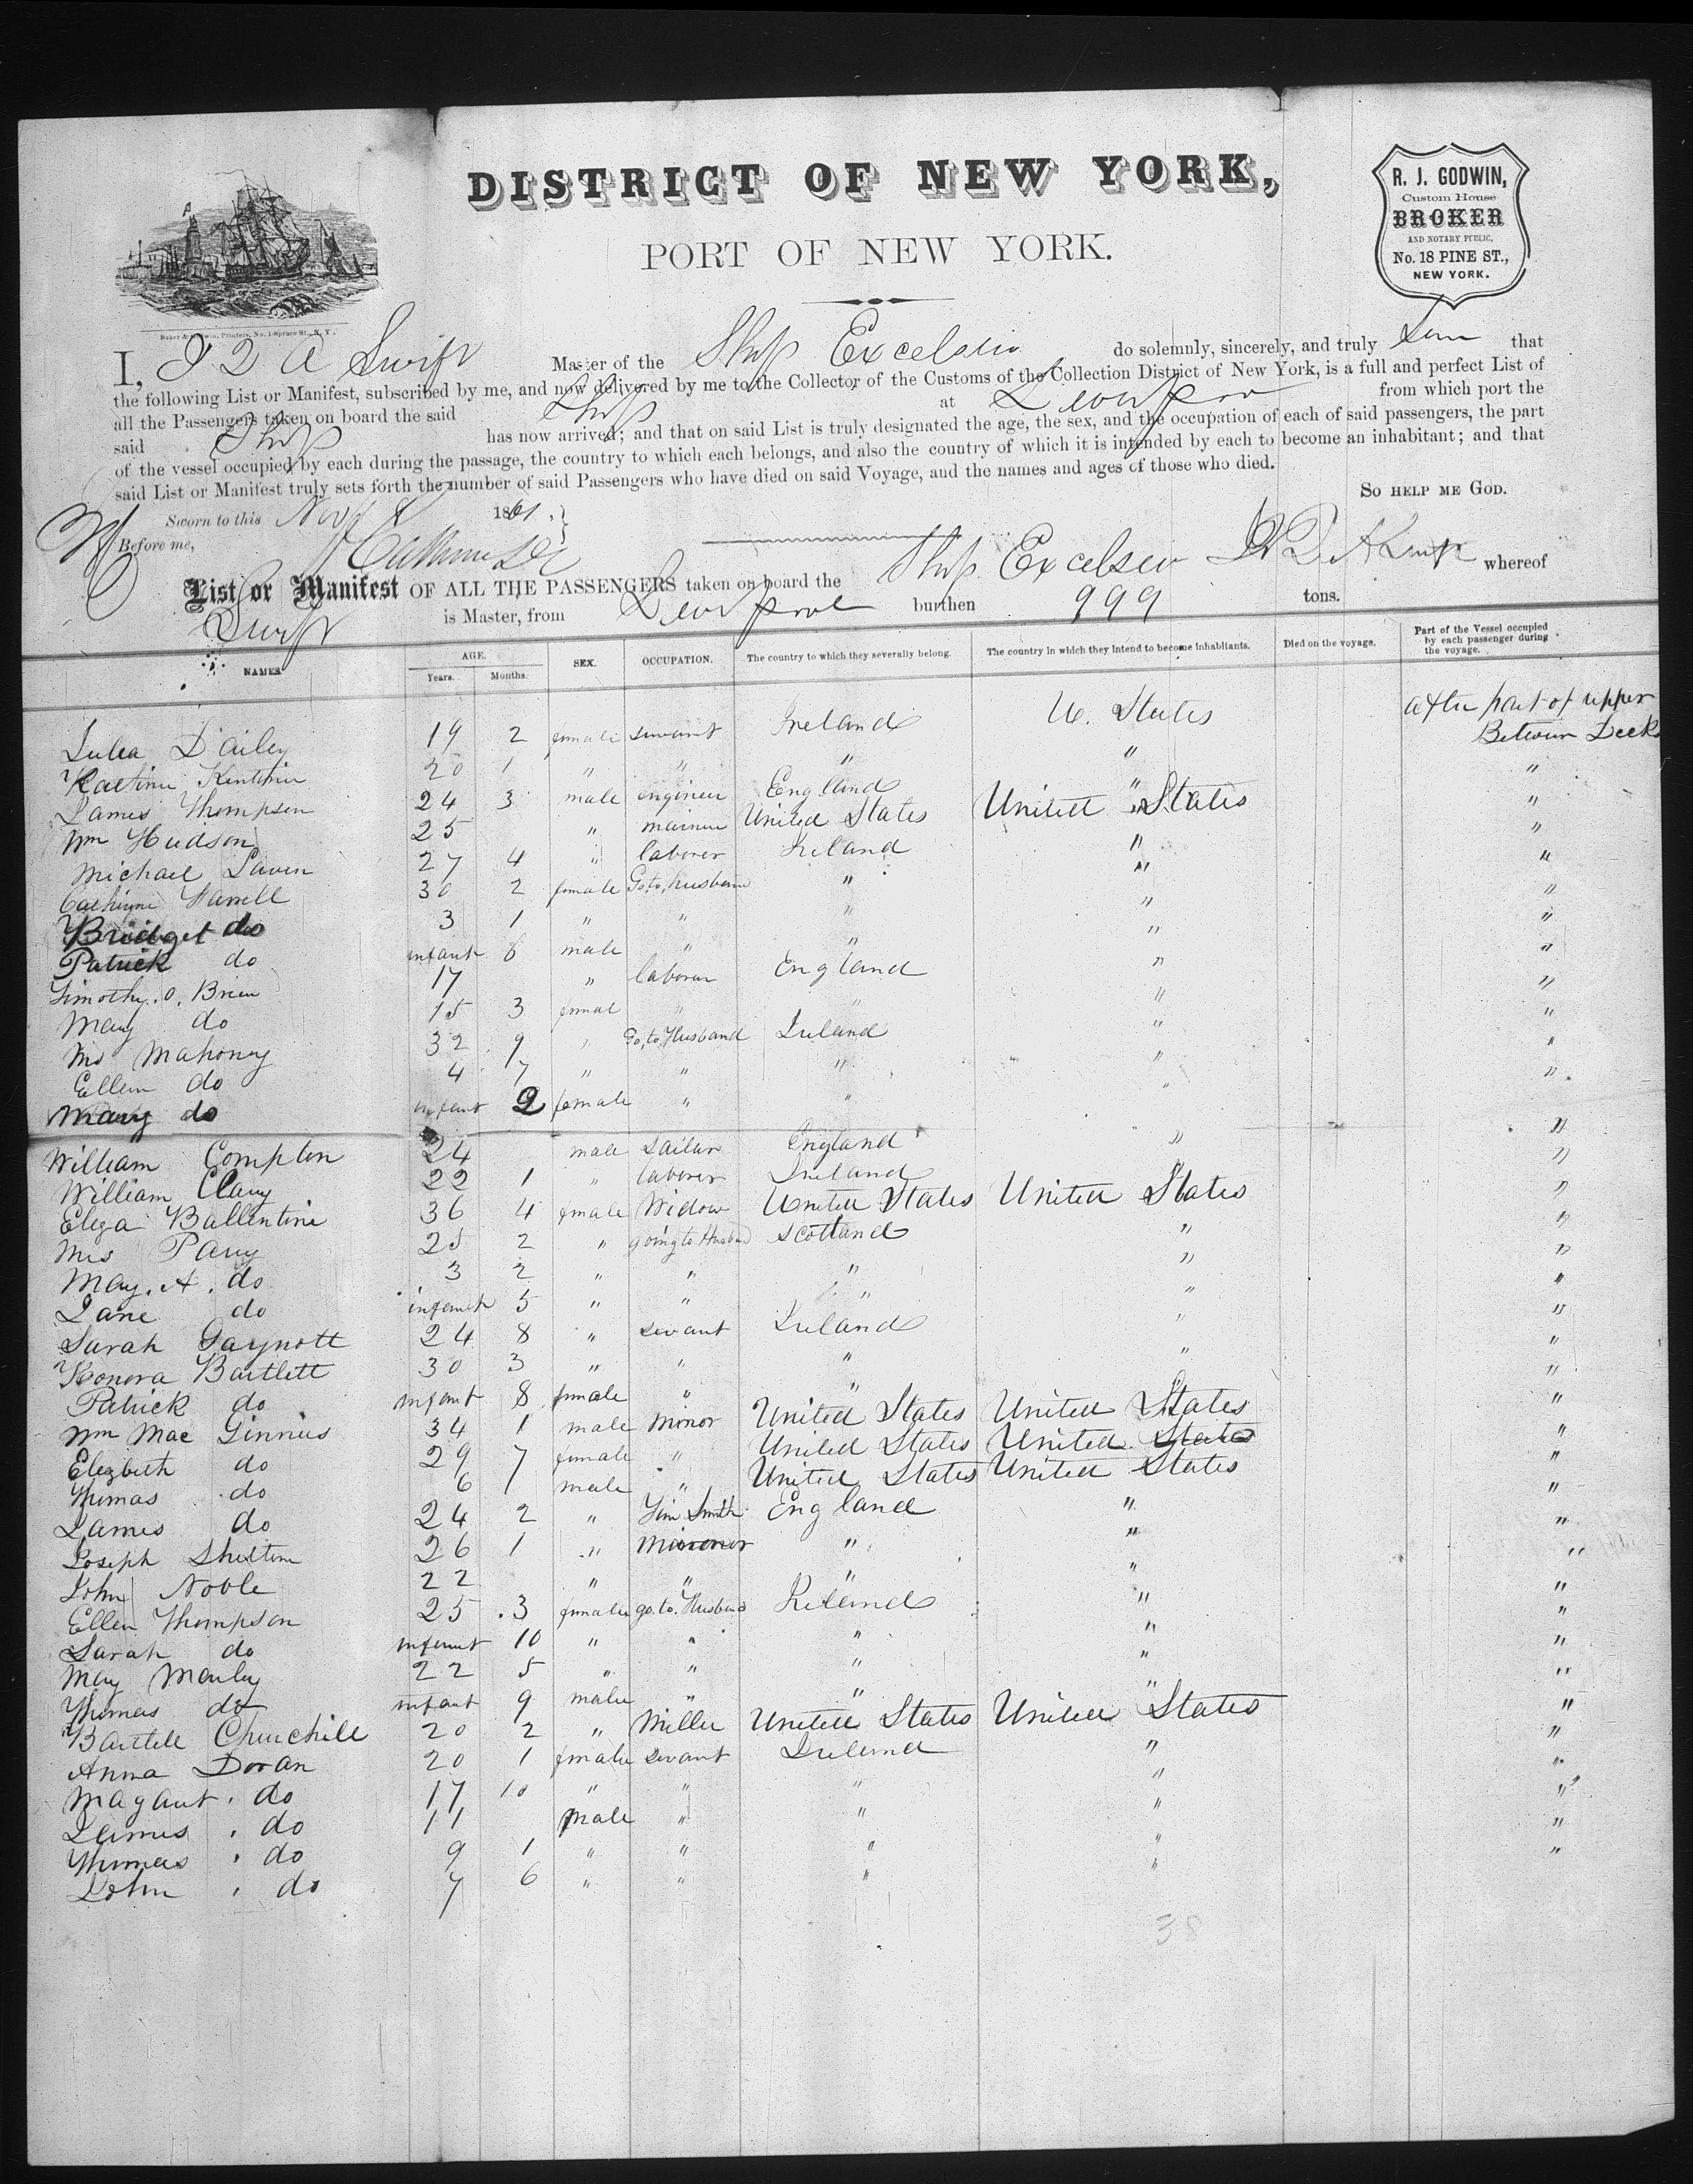 DISTRICT OF NEW YORK,
PORT OF NEW YORK.
R. J. GODWIN,
Custom House
BROKER
AND NOTARY PUBLIC,
No. 18 PINE ST.,
NEW YORK.
Baker & Godwin, Printers, No. 1 Spruce St., N. Y.
I, Swift Master of the Ship Excelsior do solemnly, sincerely, and truly that
the following List or Manifest, subscribed by me, and now delivered by me to the Collector of the Customs of the Collection District of New York, is a full and perfect List of
all the Passengers taken on board the said Ship at Liverpool from which port the
said Ship has now arrived; and that on said List is truly designated the age, the sex, and the occupation of each of said passengers, the part
of the vessel occupied by each during the passage, the country to which each belongs, and also the country of which it is intended by each to become an inhabitant; and that
said List or Manifest truly sets forth the number of said Passengers who have died on said Voyage, and the names and ages of those who died.
SO HELP ME GOD.
Sworn to this Nov 1861.
Before me,
List or Manifest OF ALL THE PASSENGERS taken on board the Ship Excelsior whereof
Swift is Master, from Liverpool burthen 999 tons.
NAMES AGE. Years. Months. SEX. OCCUPATION. The country to which they severally belong. The country in which they intend to become inhabitants. Died on the voyage. Part of the Vessel occupied by each passenger during the voyage.
Julia Dailey 19 2 female servant Ireland U. States after part of upper Between Decks
20 1 " " " " "
James Thompson 24 3 male engineer England " "
Wm Hudson 25 " United States United States "
Michael 27 4 " laborer Ireland " "
30 2 female Go to husband " " "
Bridget do 3 1 " " " " "
Patrick do infant 8 male " " " "
Timothy O. Brien 17 " laborer England " "
Mary do 15 3 femal " " " "
Mrs Mahoney 32 9 " Go to Husband Ireland " "
Ellen do 4 7 " " " " "
Mary do infant 2 female " " " "
William Compton 24 male Sailor England " "
William Clary 22 1 " laborer Ireland " "
Eliza Ballentine 36 4 female Widow United States United States "
Mrs Parry 25 2 " going to Husband Scotland " "
Mary. A. do 3 2 " " " " "
Jane do infant 5 " " " " "
Sarah Gaynott 24 8 " servant Ireland " "
Honora Bartlett 30 3 " " " " "
Patrick do infant 8 female " " "
Wm Mac Ginnius 34 1 male minor United States United States "
Elezbeth do 29 7 female " United States United States "
Thomas do 6 1 male " United States United States "
James do 24 2 " Smith England " "
Joseph Shelton 26 1 " " " "
John Noble 22 " " " " "
Ellen Thompson 25 3 female go. to. Husband Ireland " "
Sarah do infant 10 " " " " "
Mary Manley 22 5 " " " " "
Thomas do infant 9 male " " " "
Churchill 20 2 " Miller United States United States "
Anna Doran 20 1 female servant Ireland " "
do 17 10 " " " " "
James do 11 male " " " "
Thomas do 9 1 " " " " "
John do 7 6 " " " " "
38